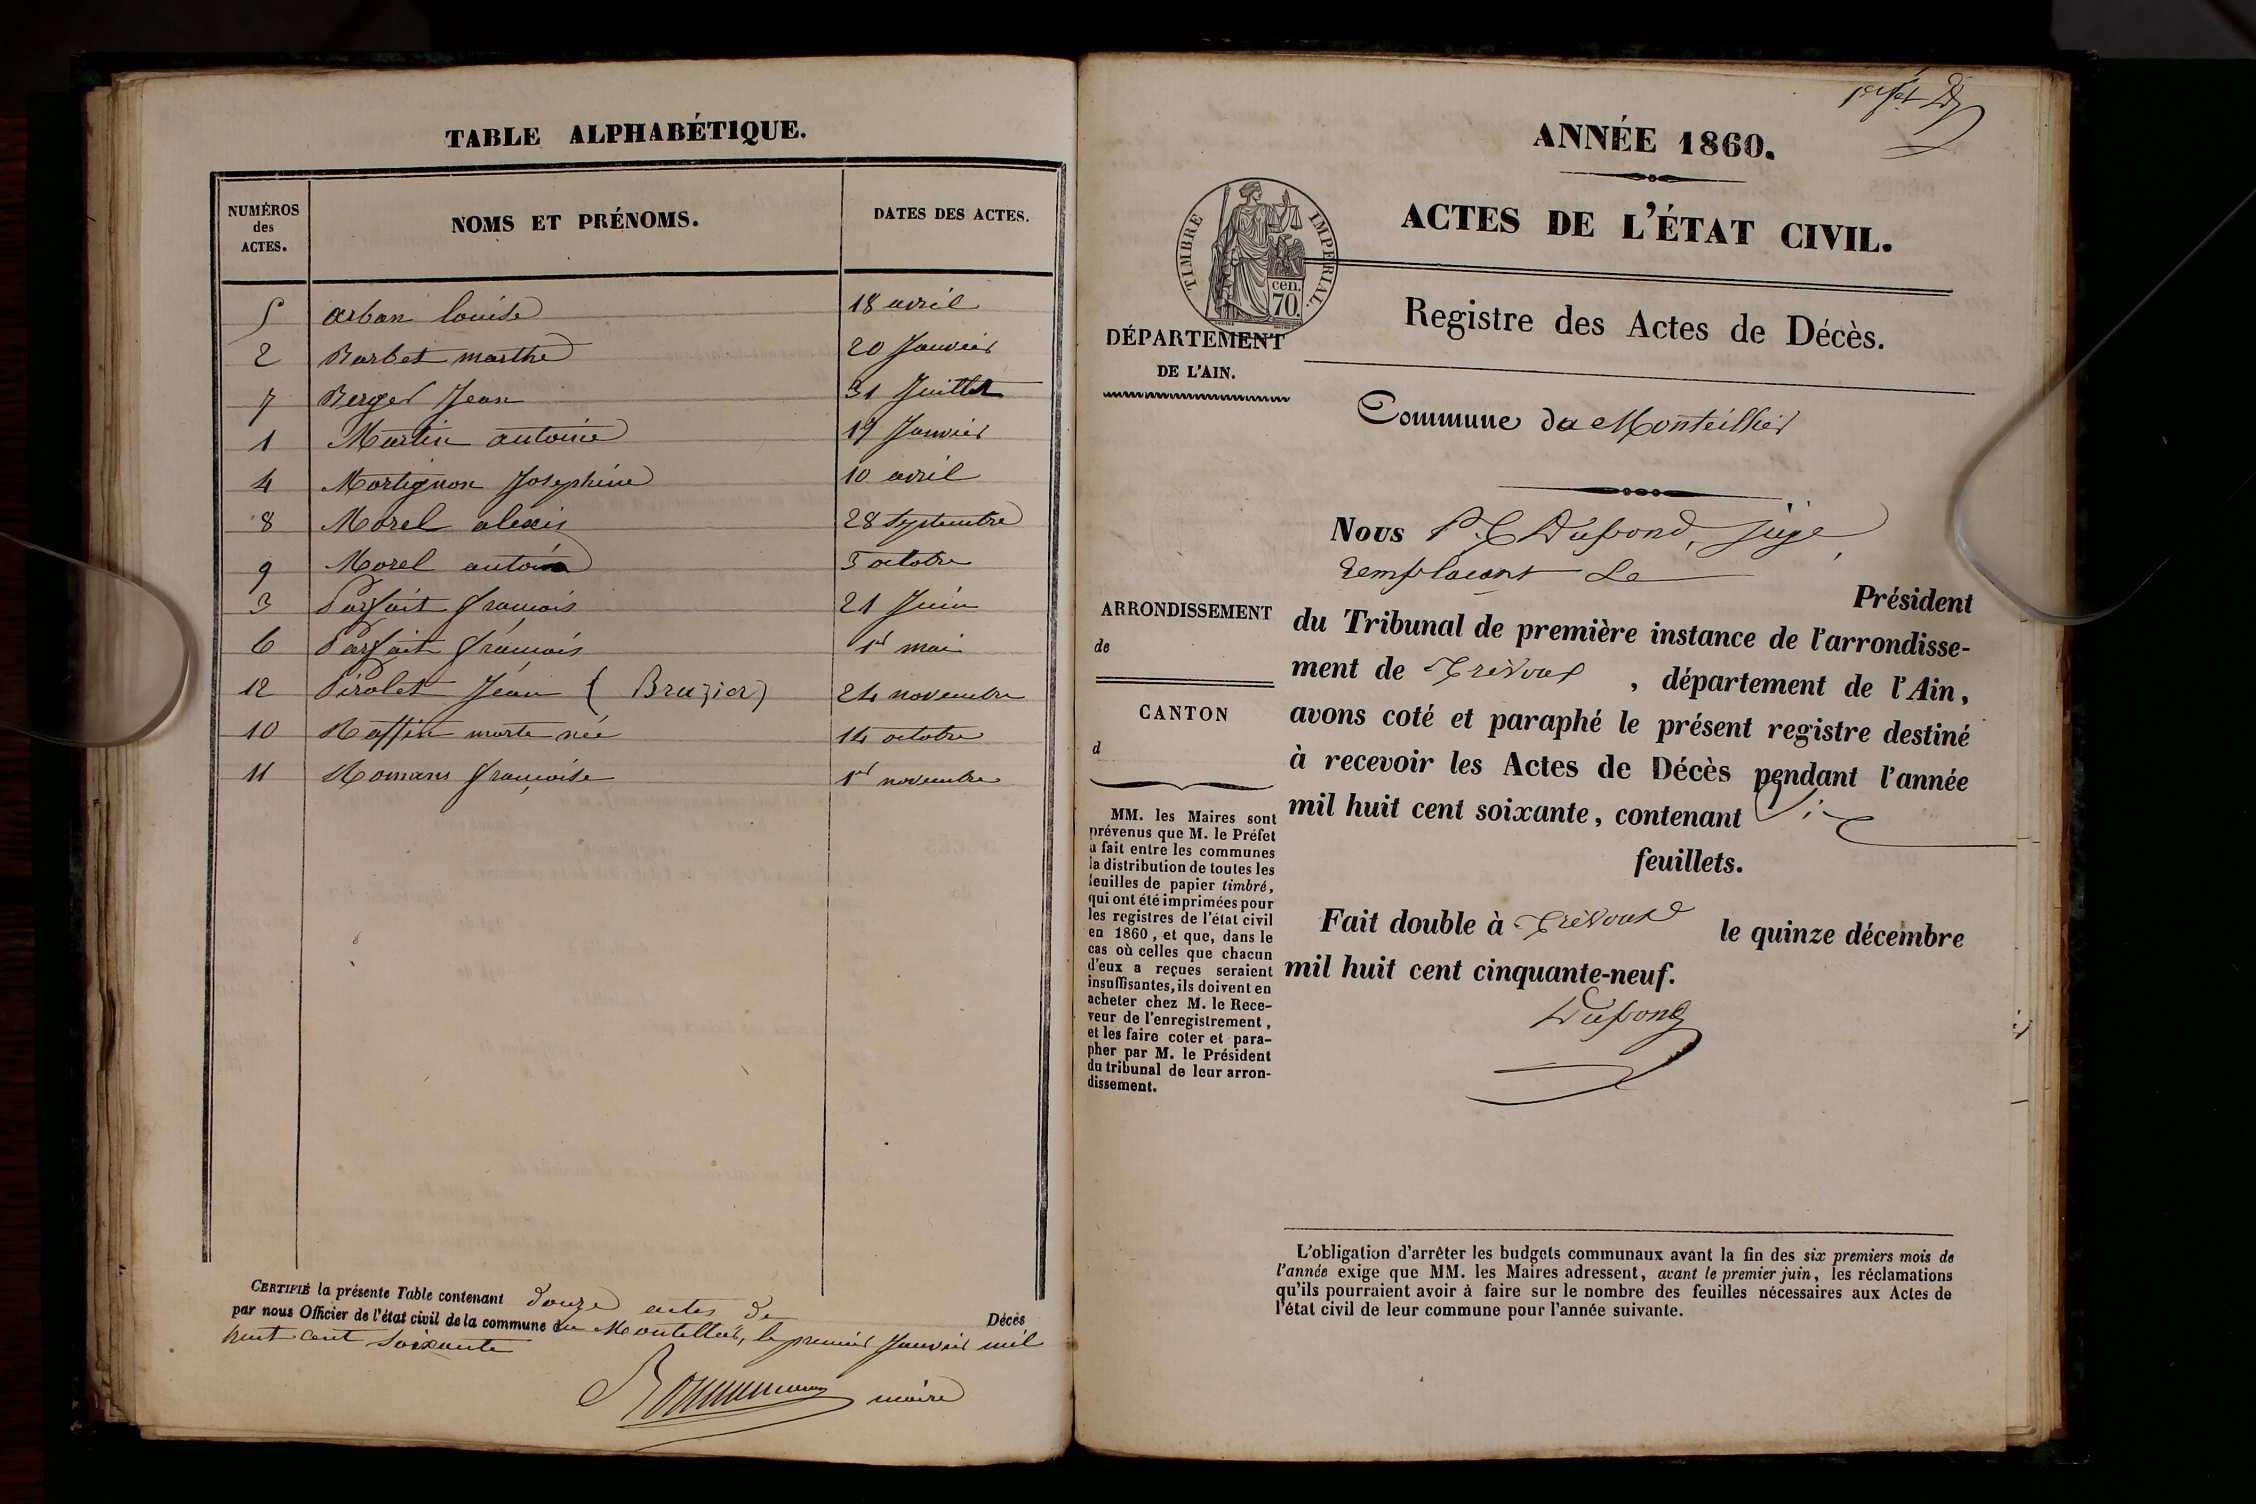 TABLE ALPHABÉTIQUE.
NUMÉROS des ACTES. NOMS ET PRÉNOMS. DATES DES ACTES.
5 arban louise 18 avril
2 Barbet marthe 20 Janvier
7 Berger Jean 31 Juillet
1 Martin antoine 17 Janvier
4 Martignon Josephine 10 avril
8 Morel alexis 28 Septembre
9 Morel antoine 3 octobre
3 Parfait francois 21 Juin
6 Parfait francois 1er mai
12 Pirolet Jean ( Bruzier) 24 novembre
10 Raffin morte née 14 octobre
11 Romans françoise 1er novembre
CERTIFIÉ la présente Table contenant douze actes de Décès
par nous Officier de l'état civil de la commune du Montellier, le premier Janvier mil
huit cent soixante
maire
ANNÉE 1860.
ACTES DE L'ÉTAT CIVIL.
TIMBRE IMPÉRIAL.
cen.
70.
DÉPARTEMENT
DE L'AIN.
Registre des Actes de Décès.
Commune du Monteillier
ARRONDISSEMENT
de
CANTON
d
MM. les Maires sont
prévenus que M. le Préfet
a fait entre les communes
la distribution de toutes les
feuilles de papier timbré,
qui ont été imprimées pour
les registres de l'état civil
en 1860, et que, dans le
cas où celles que chacun
d'eux a reçues seraient
insuffisantes, ils doivent en
acheter chez M. le Rece-
veur de l'enregistrement,
et les faire coter et para-
pher par M. le Président
du tribunal de leur arron-
dissement.
Nous Dupond, juge
remplacant Le Président
du Tribunal de première instance de l'arrondisse-
ment de Trévoux, département de l'Ain,
avons coté et paraphé le présent registre destiné
à recevoir les Actes de Décès pendant l'année
mil huit cent soixante, contenant
feuillets.
Fait double à Trévoux le quinze décembre
mil huit cent cinquante-neuf.
Dupond
L'obligation d'arrêter les budgets communaux avant la fin des six premiers mois de
l'année exige que MM. les Maires adressent, avant le premier juin, les réclamations
qu'ils pourraient avoir à faire sur le nombre des feuilles nécessaires aux Actes de
l'état civil de leur commune pour l'année suivante.